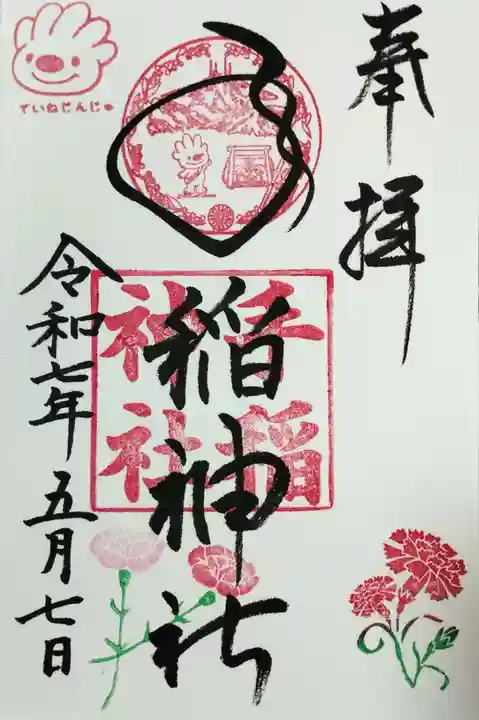 奉拝
手稲神社
令和七年五月七日
ていねじんじゃ
手稲
神社